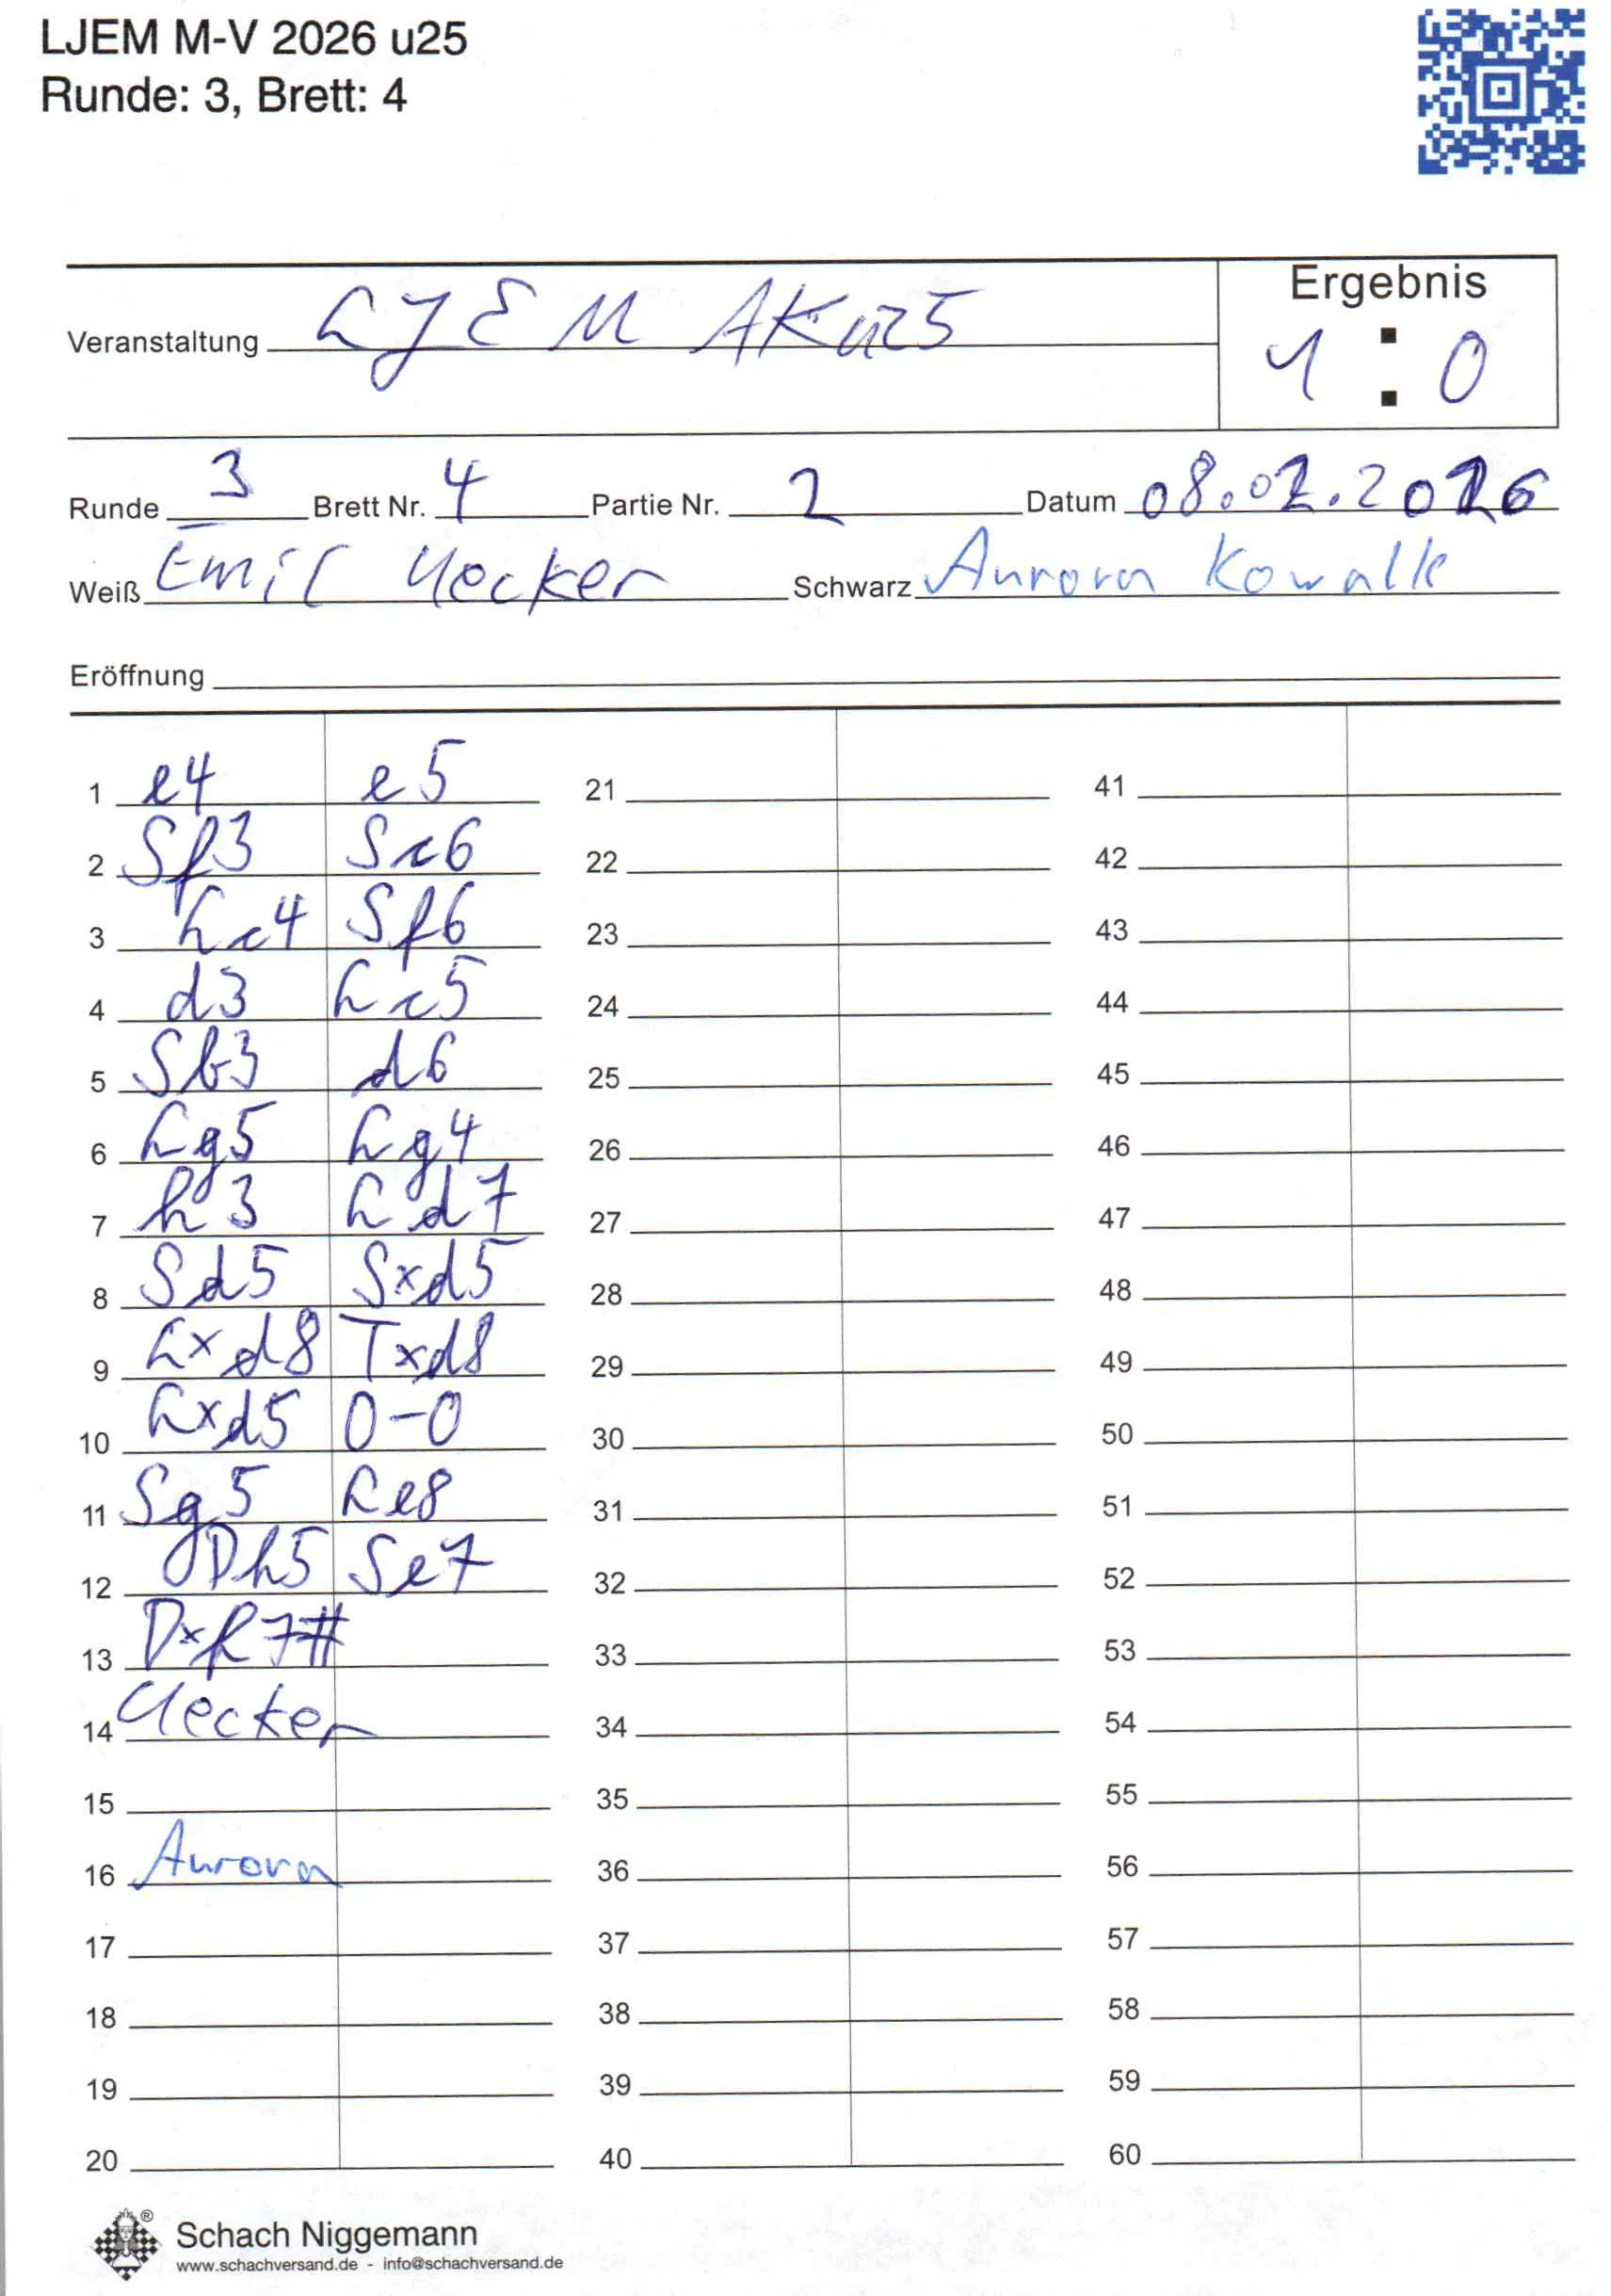 LJEM M-V 2026 u25
Runde: 3, Brett: 4
Veranstaltung LJEM AKu25
Ergebnis
1 : 0
Runde 3 Brett Nr. 4 Partie Nr. 2 Datum 08.02.2026
Weiß Emil Uecker Schwarz Aurora Kowalk
Eröffnung
1 e4 e5 21 41
2 Sf3 Sc6 22 42
3 Lc4 Sf6 23 43
4 d3 Lc5 24 44
5 Sb3 d6 25 45
6 Lg5 Lg4 26 46
7 h3 Ld7 27 47
8 Sd5 Sxd5 28 48
9 Lxd8 Txd8 29 49
10 Lxd5 0-0 30 50
11 Sg5 Le8 31 51
12 Dh5 Se7 32 52
13 Dxh7# 33 53
14 Uecker 34 54
15 35 55
16 Aurora 36 56
17 37 57
18 38 58
19 39 59
20 40 60
® Schach Niggemann
www.schachversand.de - info@schachversand.de